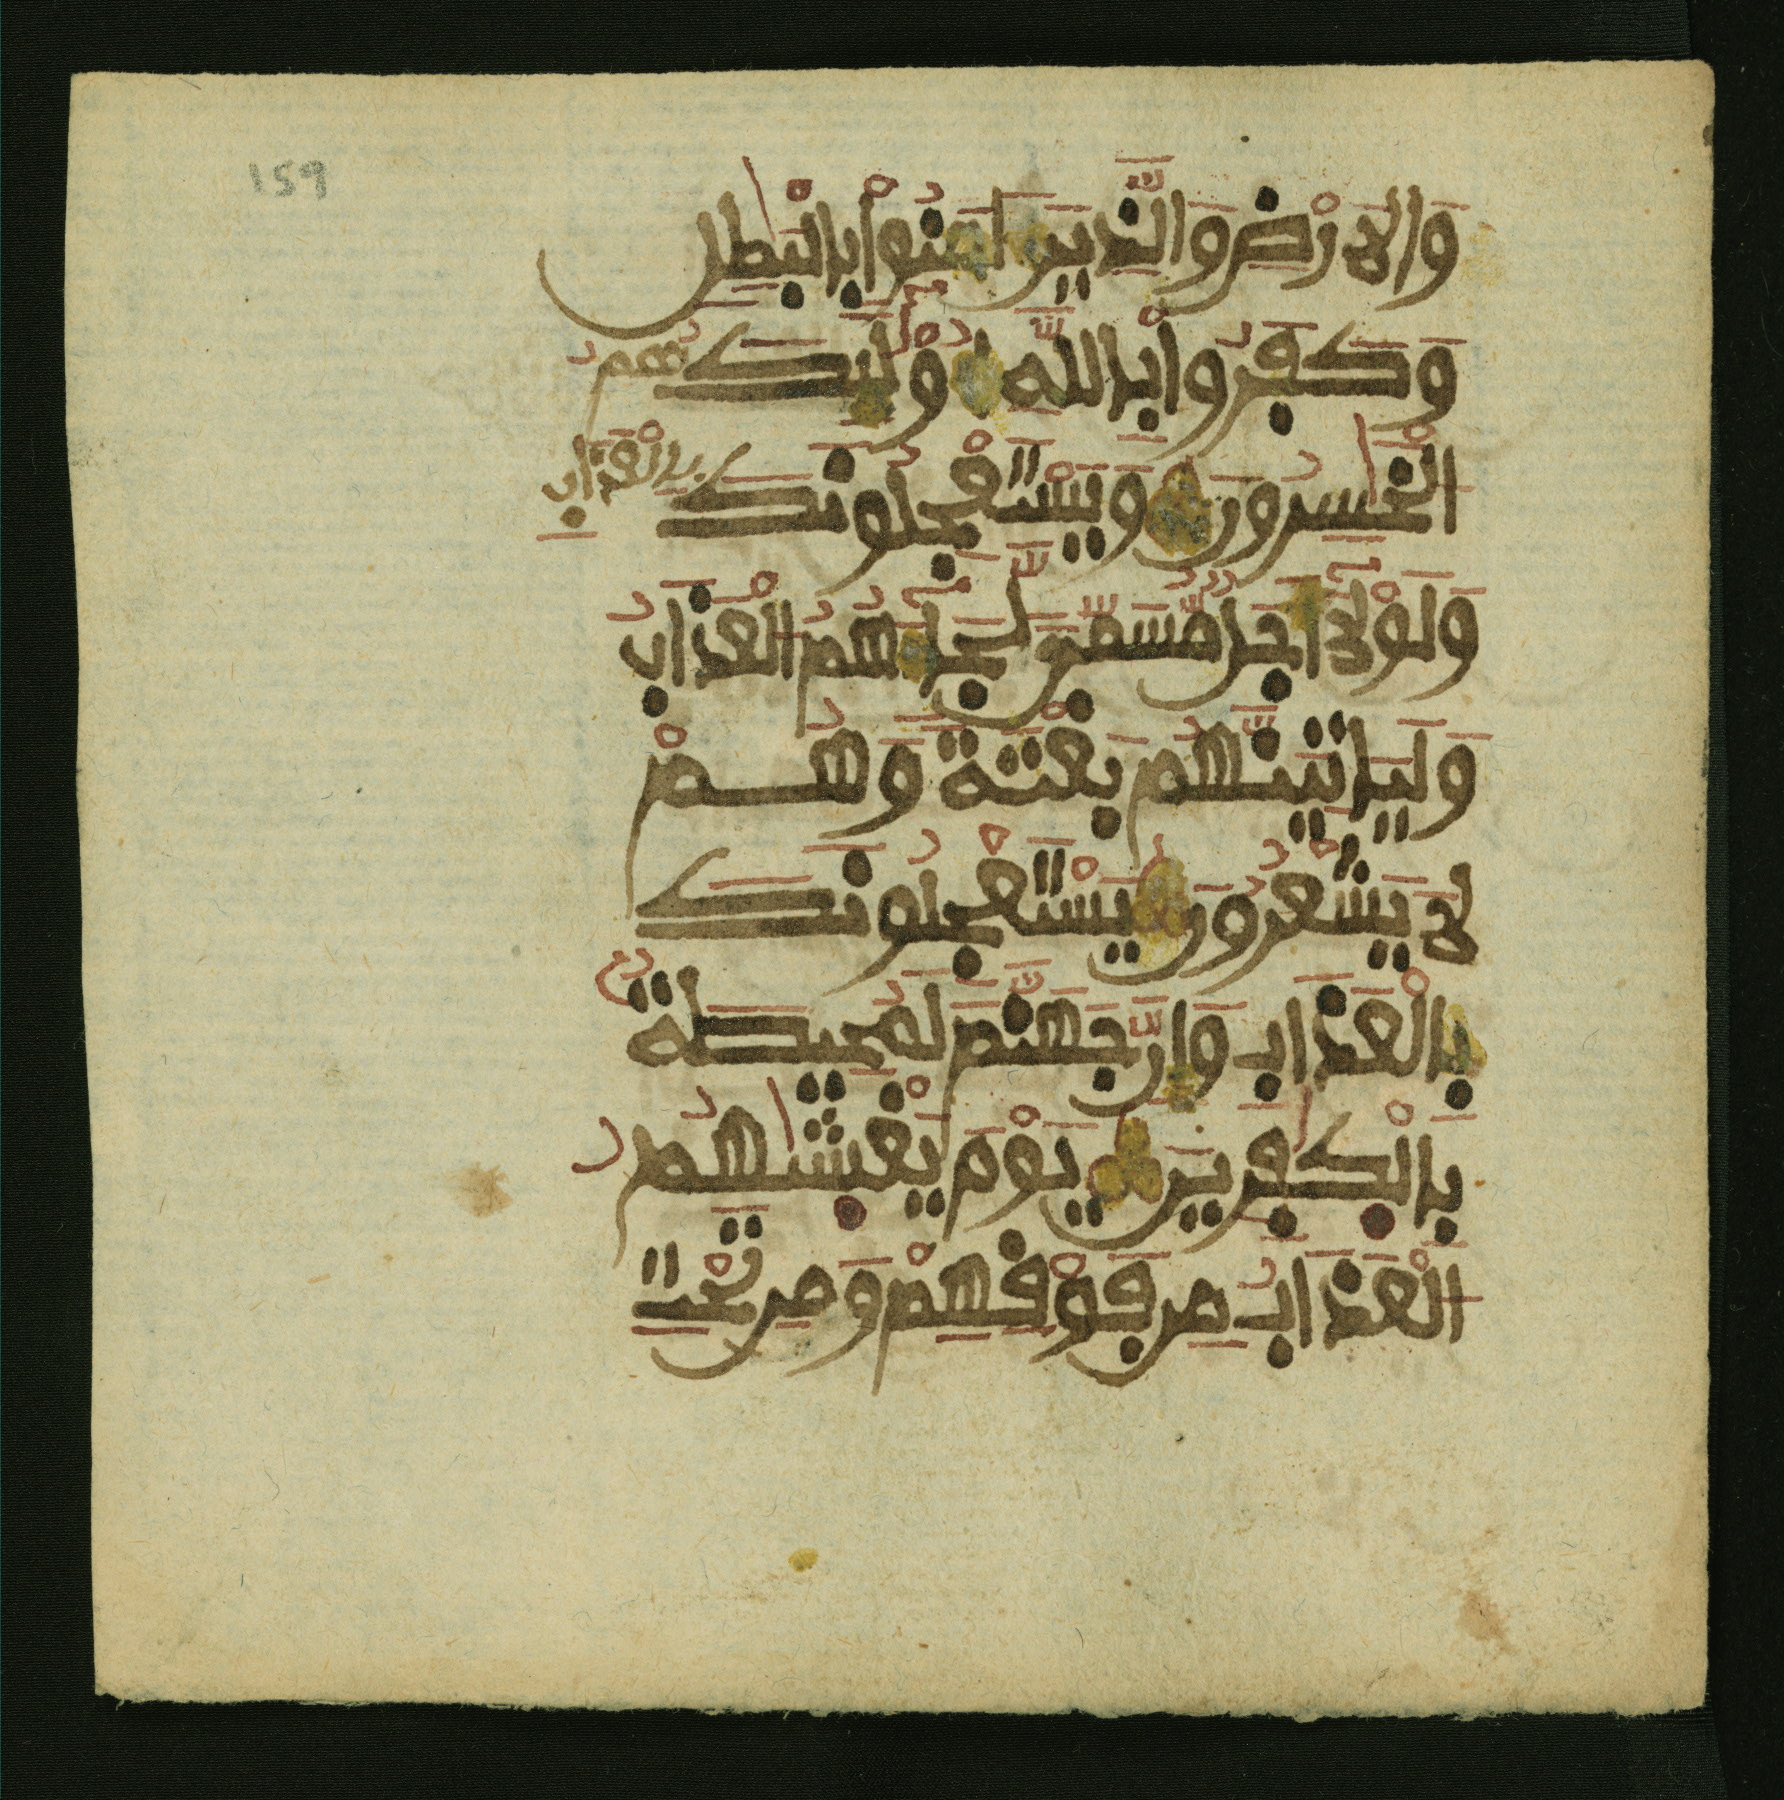 159
وَالَارْضِ وَالَّذِينَ ءَامَنُوا بِالْبَٰطِلِ
وَكَفَرُوا بِاللَّهِ أُوْلَٰٓئِكَ هُمُ
الْخَٰسِرُونَ وَيَسْتَعْجِلُونَكَ بِالْعَذَابِ
وَلَوْلَآ أَجَلٌ مُّسَمًّى لَّجَآءَهُمُ الْعَذَابُ
وَلَيَاتِيَنَّهُم بَغْتَةً وَهُمْ
لَا يَشْعُرُونَ يَسْتَعْجِلُونَكَ
بِالْعَذَابِ وَإِنَّ جَهَنَّمَ لَمُحِيطَةٌ
بِالْكَٰفِرِينَ يَوْمَ يَغْشَٰهُمُ
الْعَذَابُ مِن فَوْقِهِمْ وَمِن تَحْتِ